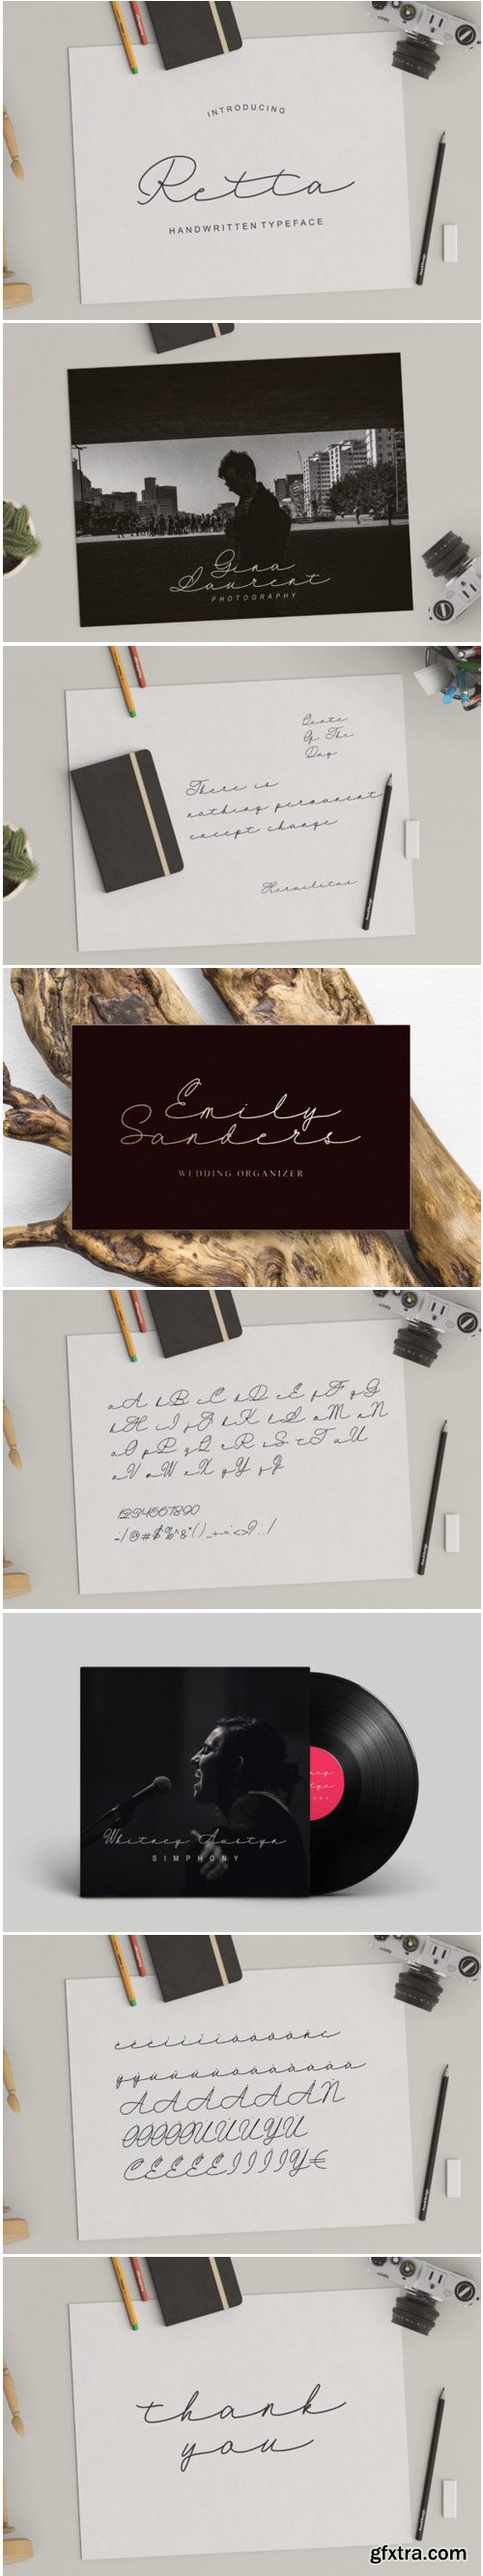 INTRODUCING
Retta
HANDWRITTEN TYPEFACE
Gina
Laurent
PHOTOGRAPHY
Quote
Of The
Day
There is
nothing permanent
except change
Heraclitus
Emily
Sanders
WEDDING ORGANIZER
aA bB cC dD eE fF gG
hH iI jJ kK lL mM nN
oO pP qQ rR sS tT uU
vV wW xX yY zZ
1234567890
Whitney Austyn
SIMPHONY
thank
you
gfxtra.com